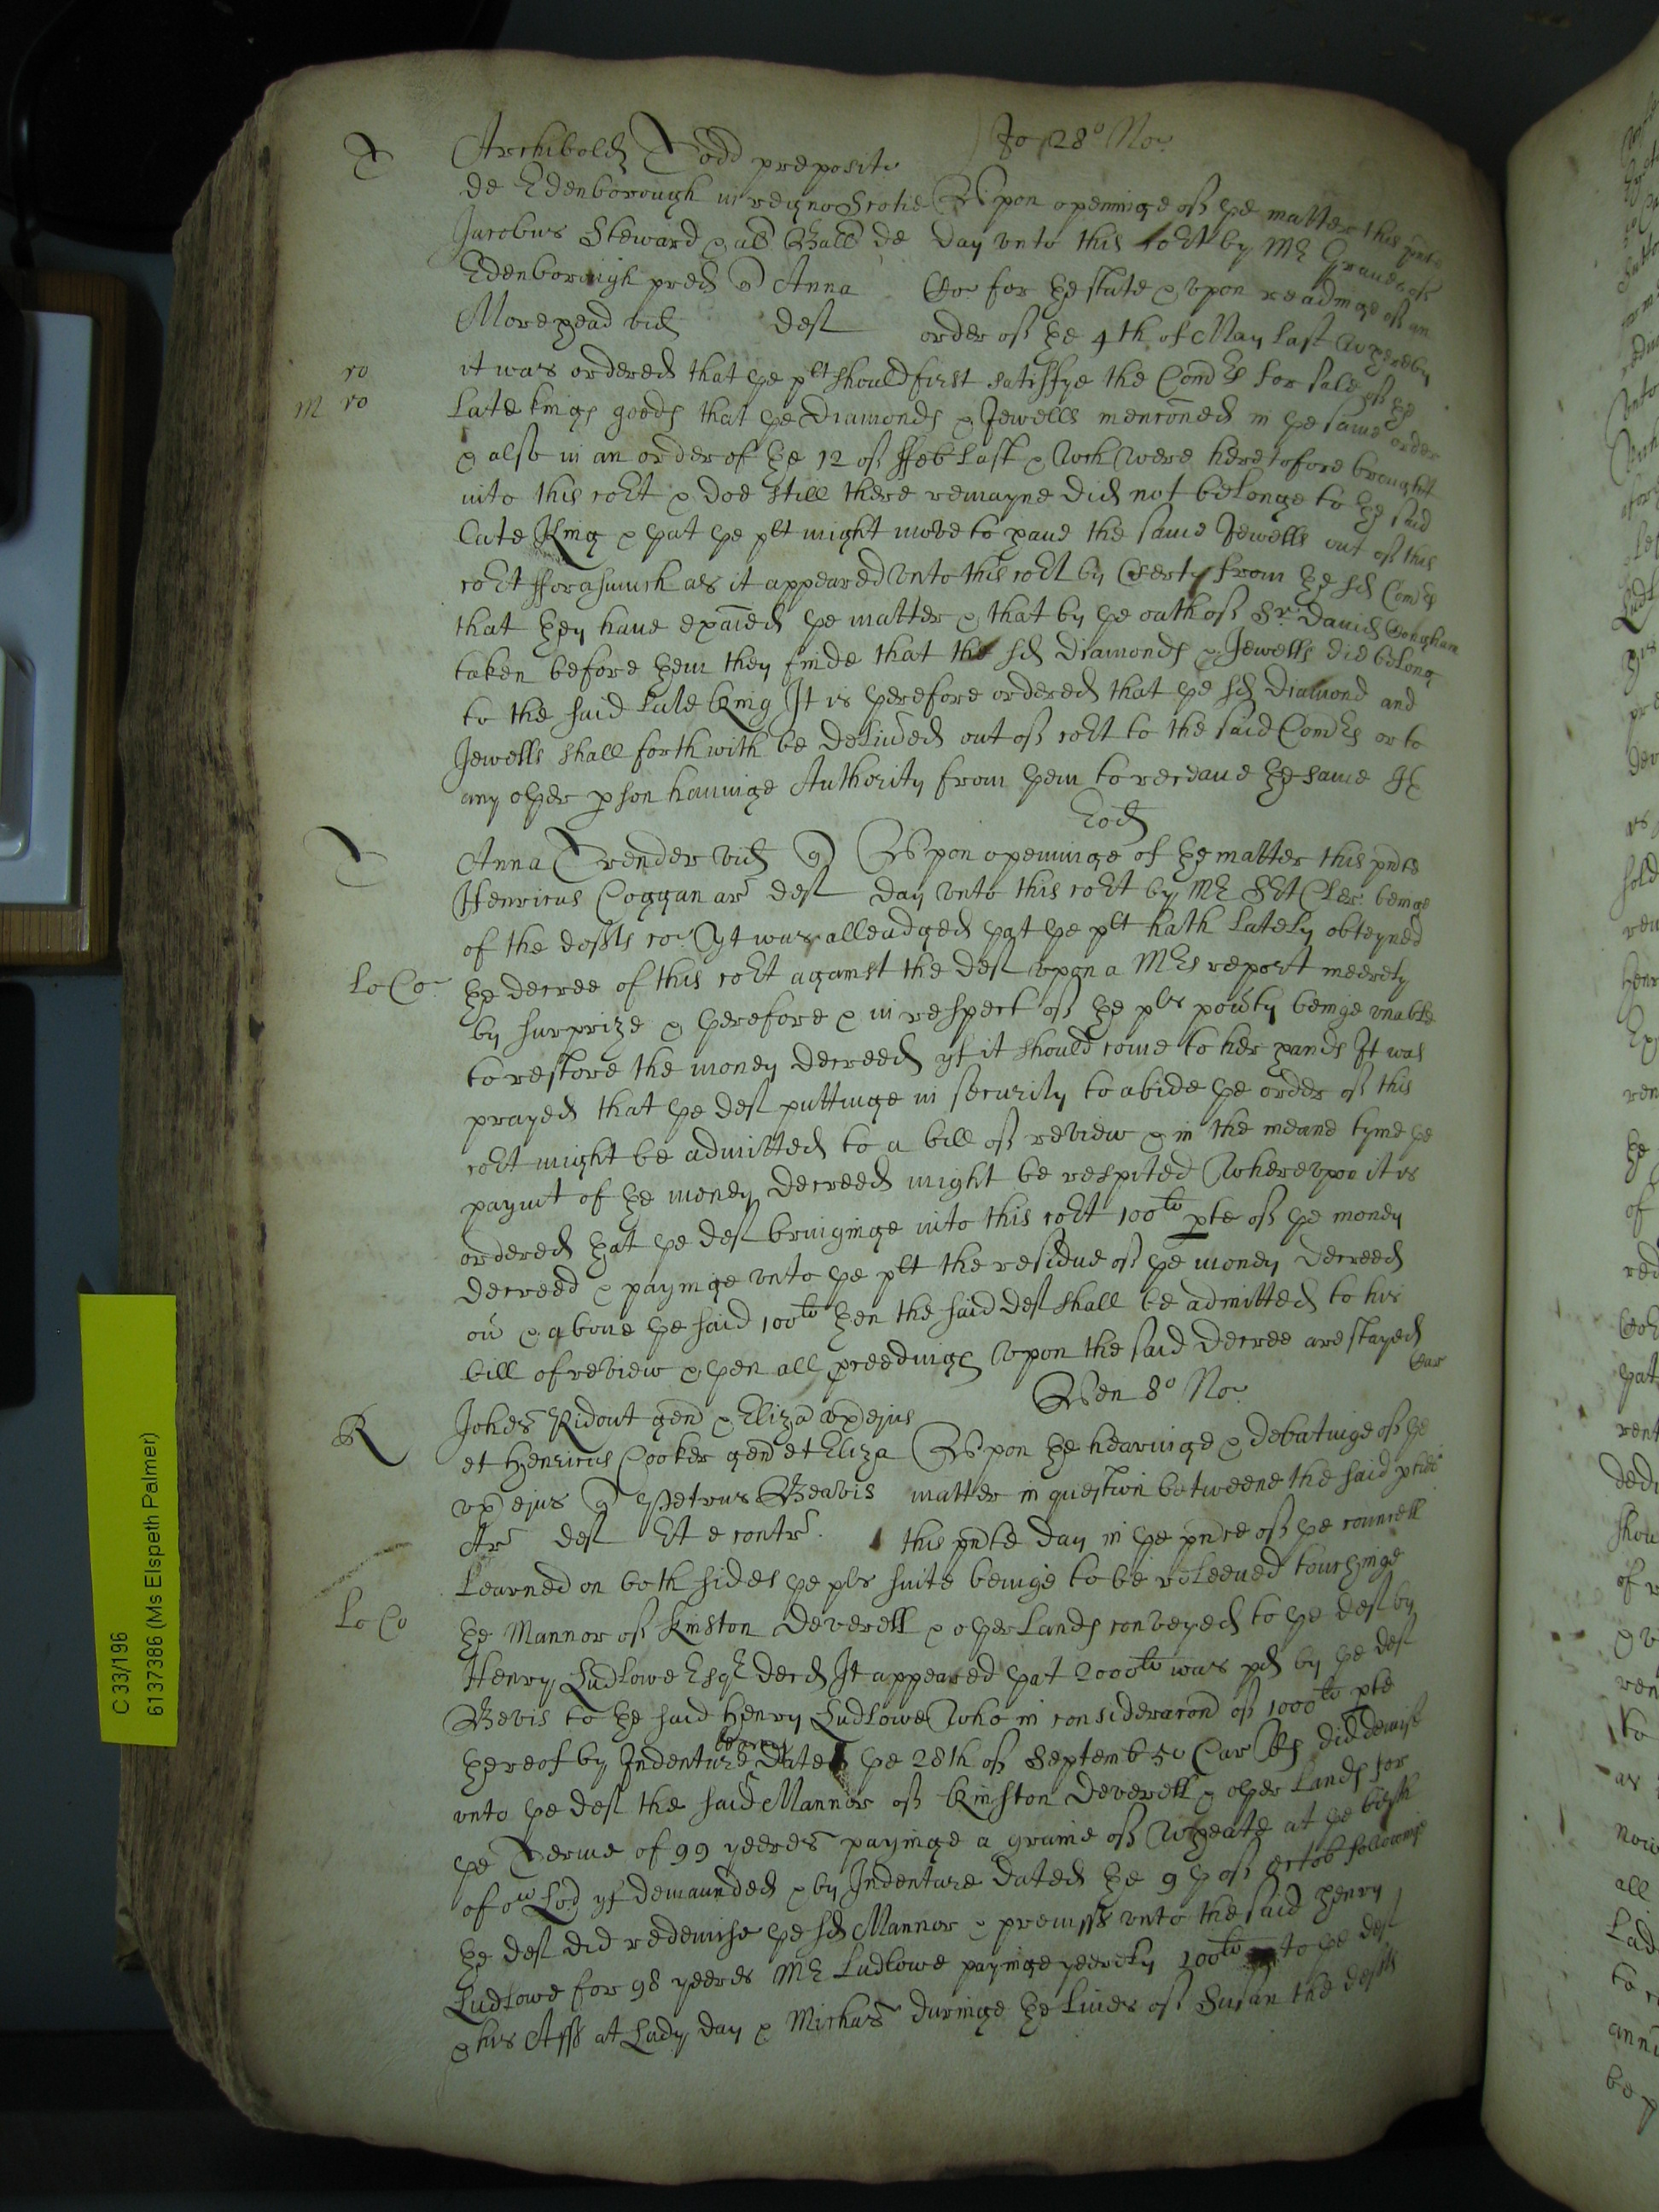 Jo 28o No
T
Archibold Todd preposit
de Edenborough in regno Scotie
Jacobus Steward & als Ball de
Edenborough pred q Anna
Morehead vid def
Upon openinge of the matter this pnte
day vnto this Cort by Mr Graues of
for the state & vpon readinge of an
order of the 4th of May last whereby
ro
it was ordered that the plt should first satisfye the Comrs for sale of the
M ro
Late kings goods that the Diamonds & Jewells menconed in the same order
& also in an order of the 12 of ffeb last & wch were heretofore brought
into this cort & doe still there remayne did not belonge to the said
Late King & that the plt might move to haue the same Jewells out of this
cort fforasmuch as it appeared vnto this cort by Certy from the sd Comrs
that they haue exaied the matter & that by the oath of Sr Dauid
taken before them they finde that the sd Diamonds & Jewells did belong
to the said Late King It is therefore ordered that the sd Diamond and
Jewells shall forthwith be deliued out of cort to the said Comrs or to
any other pson hauinge Authority from them to receaue the same
Eod
T
Anna Trender vid q
Henricus Coggan ar def
Upon openinge of the matter this pnte
day vnto this cort by Mr Sct Cler beinge
of the defts co yt was alleadged that the plt hath Lately obteyned
Lo Co
the decree of this cort against the def vpon a Mrs report meerely
by surprize & therefore & in respect of the pls pouty beinge vnable
to restore the money decreed yf it should come to her hands It was
prayed that the def puttinge in security to abide the order of this
cort might be admitted to a bill of review & in the meane tyme the
paymt of the money decreed might be respited Wherevpon it is
ordered that the def bringinge into this cort 100li pte of the money
decreed & payinge vnto the plt the residue of the money decreed
ou & aboue the said 100li then the said def shall be admitted to his
bill of review & then all pceedings vpon the said decree are stayed
Ven 8o No
R
Johes Ridout gen & Eliza ux ejus
et Henricus Cooker gen et Eliza
ux ejus q Petrus Beavis
Ar def Et e contr
Upon the hearinge & debatinge of the
matter in question betweene the said pties
this pnte day in the pnce of the councell
Learned on both sides the pls suite beinge to be releeued touchinge
Lo Co
the Mannor of Kinston Deverell & other Lands conveyed to the def by
Henry Ludlowe Esqr decd It appeared that 2000li was pd by the def
Bevis to the said Henry Ludlowe Who in consideracon of 1000li pte
thereof by Indenture bearing date the 28th of Septemb 5o Car Rs did demise
vnto the def the said Mannor of Kinston Deverell & other Lands for
the Terme of 99 yeeres payinge a graine of wheate at the birth
of or Lord yf demaunded & by Indenture dated the 9th of Octob followinge
the def did redemise the sd Mannor & premiss vnto the said Henry
Ludlowe for 98 yeeres Mr Ludlowe payinge yeerely 100li to the def
& his Ass at Lady day & Michas duringe the Liues of Susan the defts
C 33/196
6137386 (Ms Elspeth Palmer)